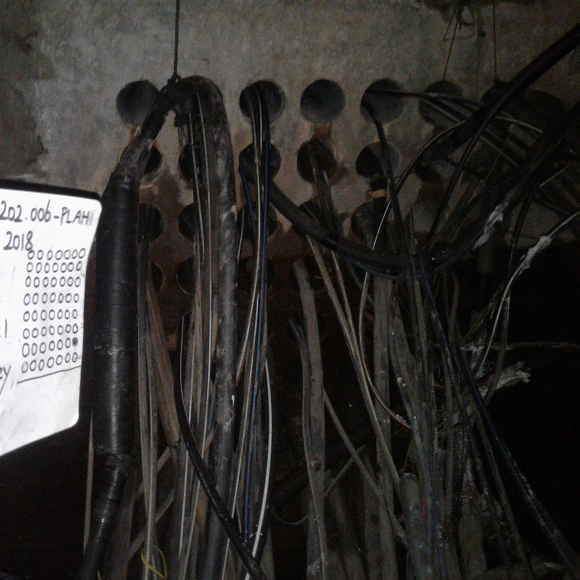 202.006-PLAH
2018